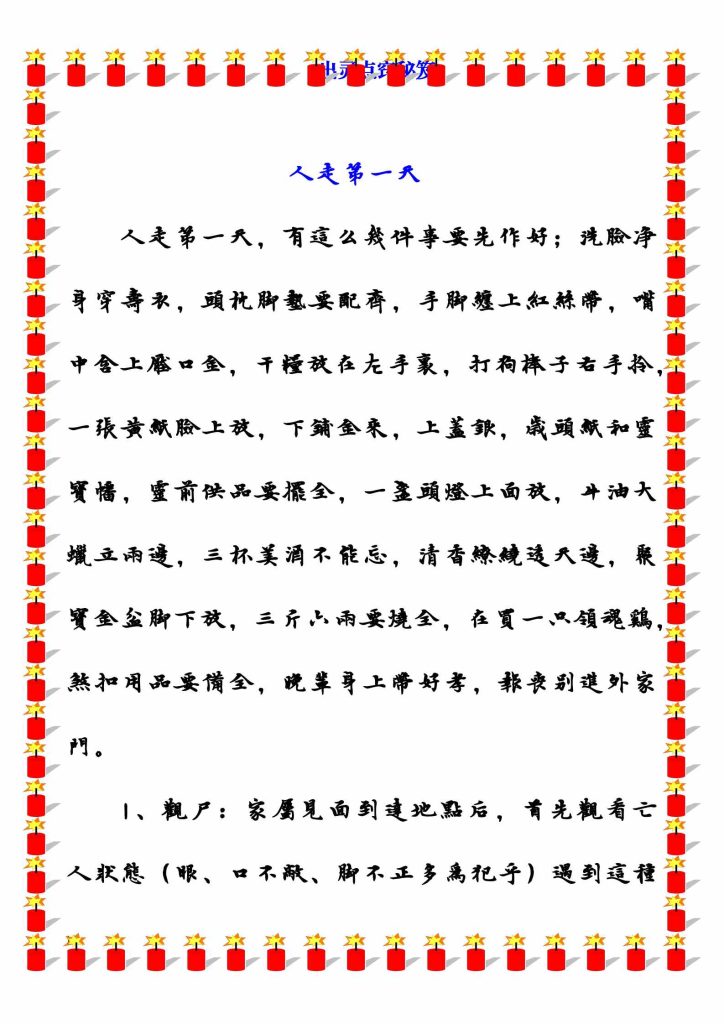 出灵点穴秘笈
人走第一天
人走第一天，有這么幾件事要先作好；洗臉净
身穿壽衣，頭枕脚墊要配齊，手脚纏上紅絲帶，嘴
中含上壓口金，干糧放在左手裏，打狗棒子右手拎，
一張黃紙臉上放，下鋪金來，上蓋銀，歲頭紙和靈
寶幡，靈前供品要擺全，一盞頭燈上面放，斗油大
蠟立兩邊，三杯美酒不能忘，清香繚繞透天邊，聚
寶金盆脚下放，三斤六兩要燒全，在買一只領魂鷄，
煞扣用品要備全，晚輩身上帶好孝，報喪别進外家
門。
1、觀尸：家屬見面到達地點后，首先觀看亡
人狀態（眼、口不敞、脚不正多爲犯乎）遇到這種